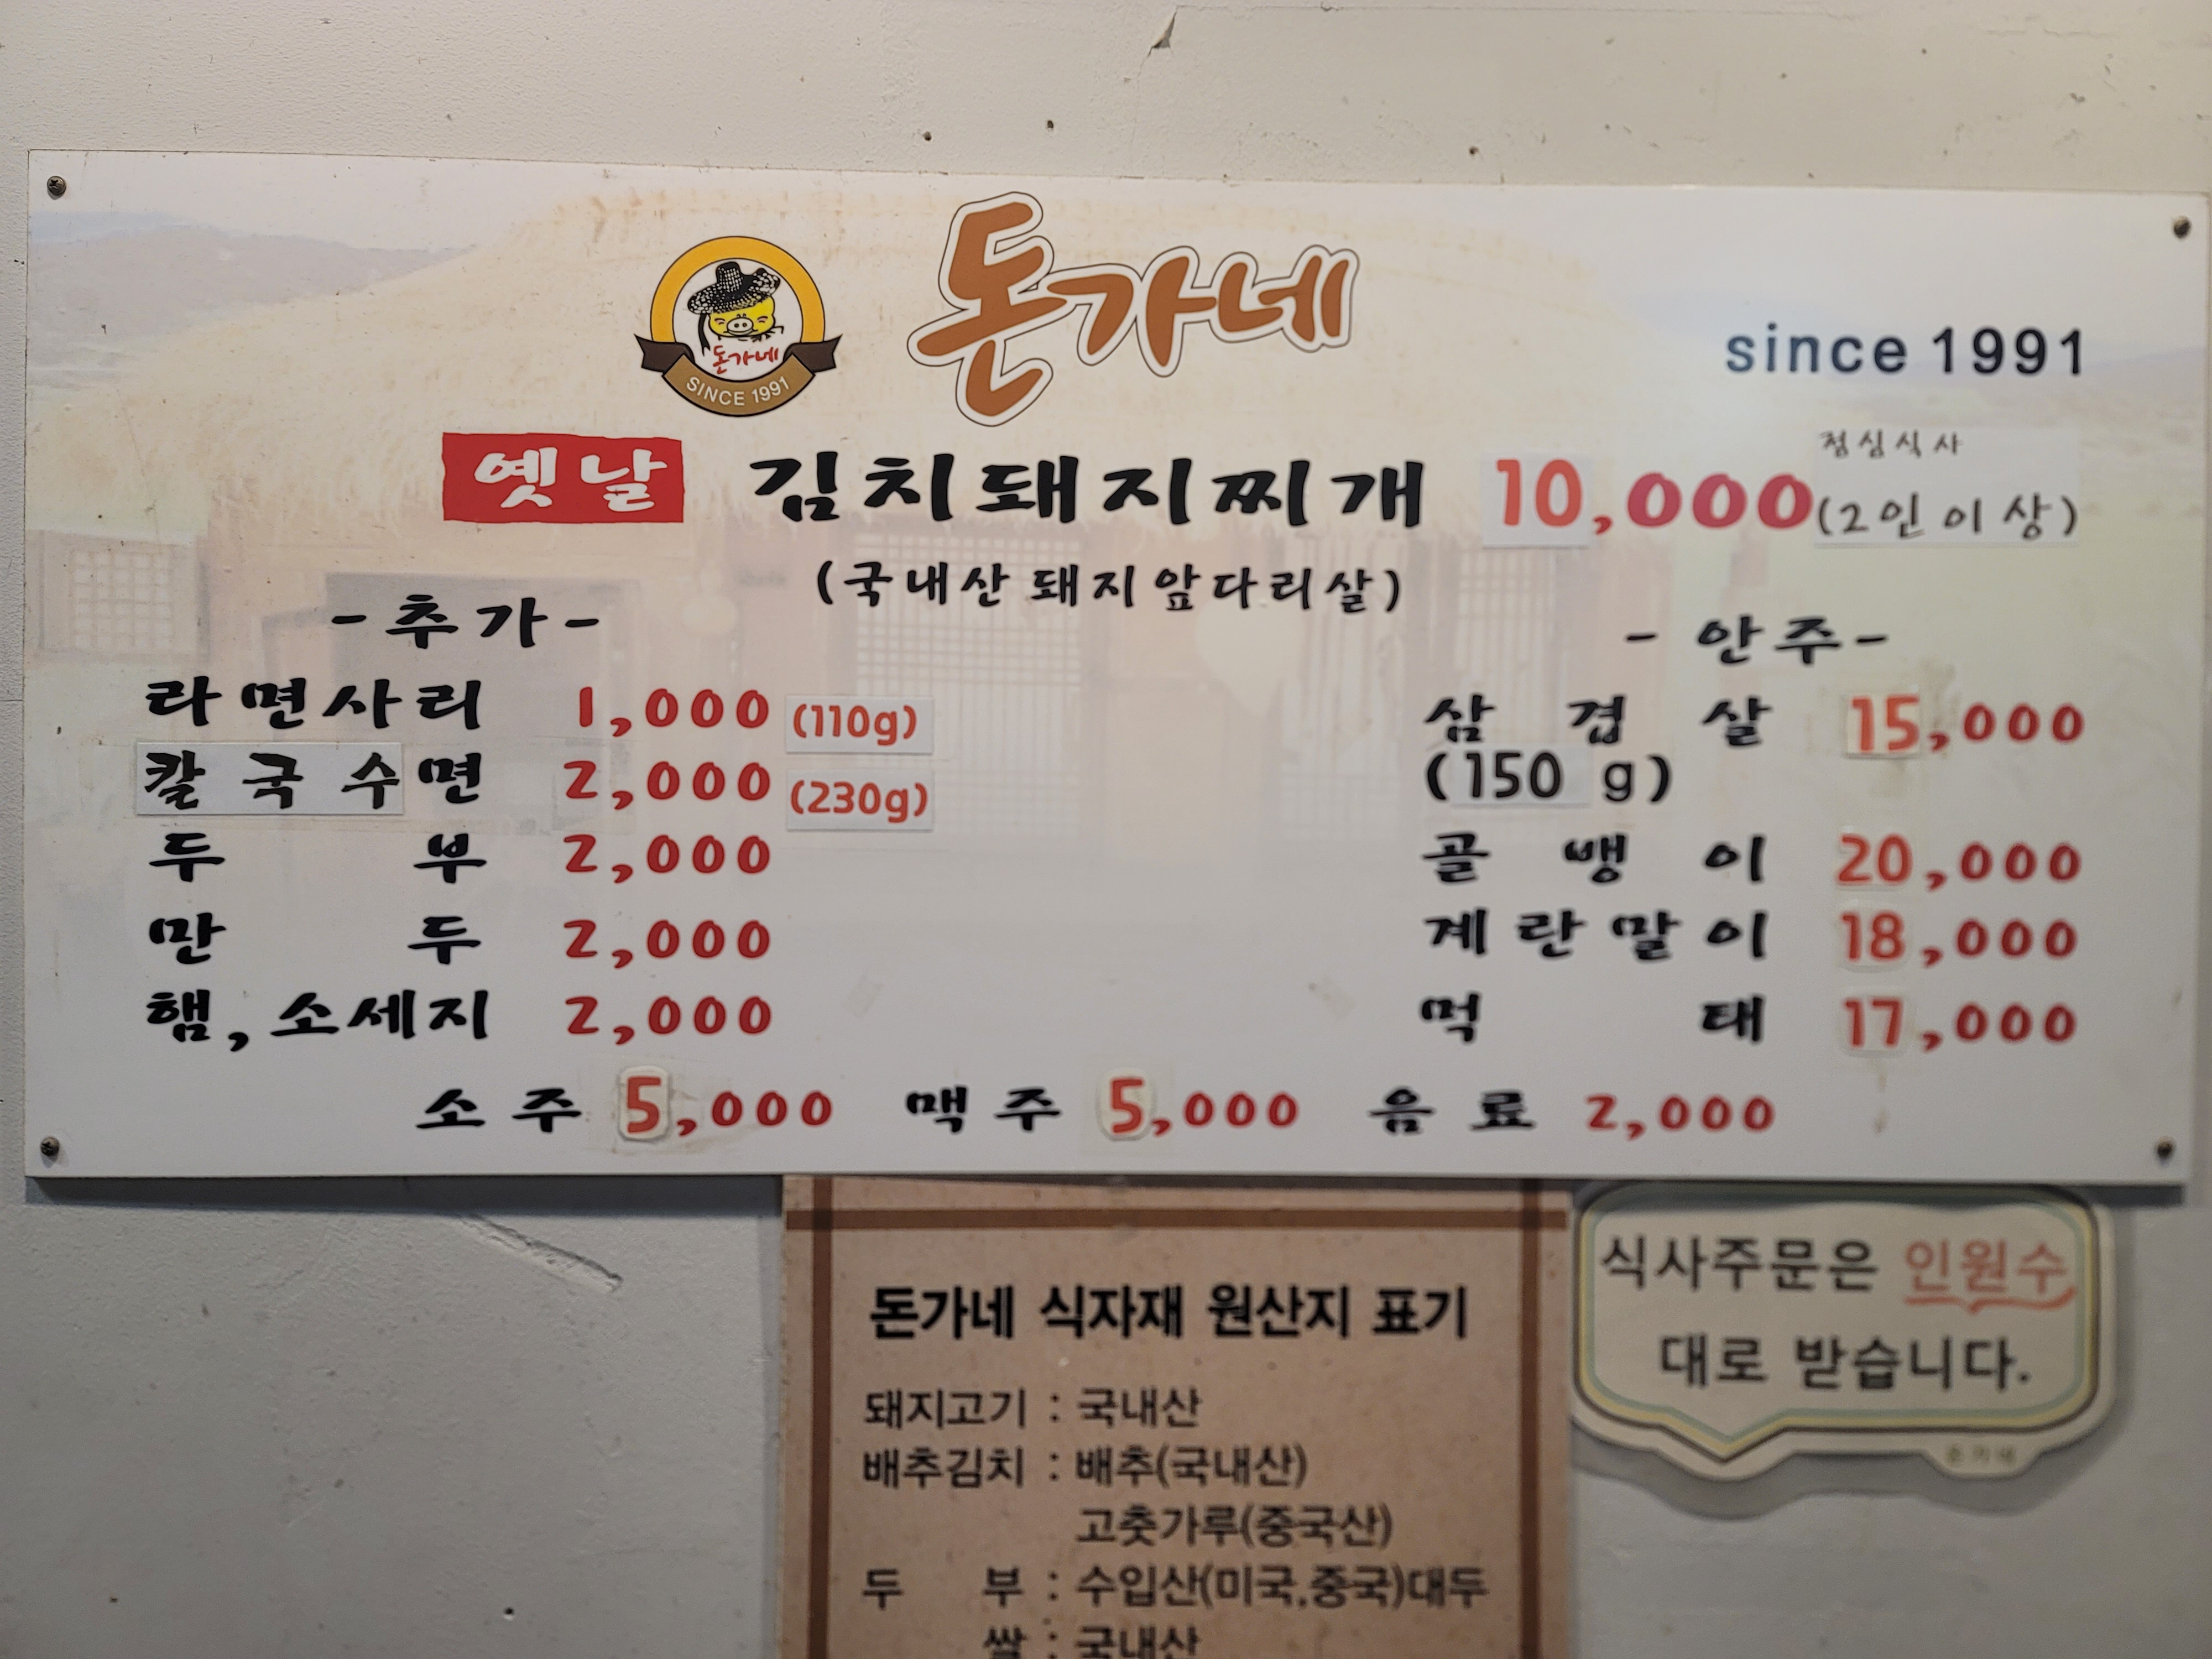 돈가네
돈가네
SINCE 1991
since 1991
옛날 김치돼지찌개 10,000 점심식사 (2인 이상)
(국내산 돼지앞다리살)
-추가-
라면사리 1,000 (110g)
칼국수면 2,000 (230g)
두부 2,000
만두 2,000
햄,소세지 2,000
-안주-
삼겹살 15,000
(150 g)
골뱅이 20,000
계란말이 18,000
먹태 17,000
소주 5,000 맥주 5,000 음료 2,000
돈가네 식자재 원산지 표기
돼지고기 : 국내산
배추김치 : 배추(국내산)
고춧가루(중국산)
두부 : 수입산(미국,중국)대두
쌀 : 국내산
식사주문은 인원수
대로 받습니다.
돈가네